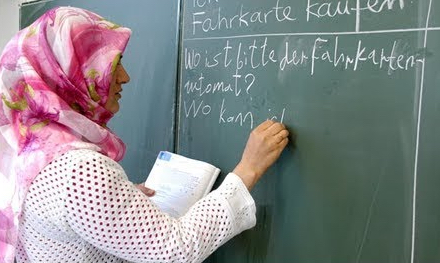 Fahrkarte kaufen
Wo ist bitte der Fahrkarten-
automat?
Wo kann i